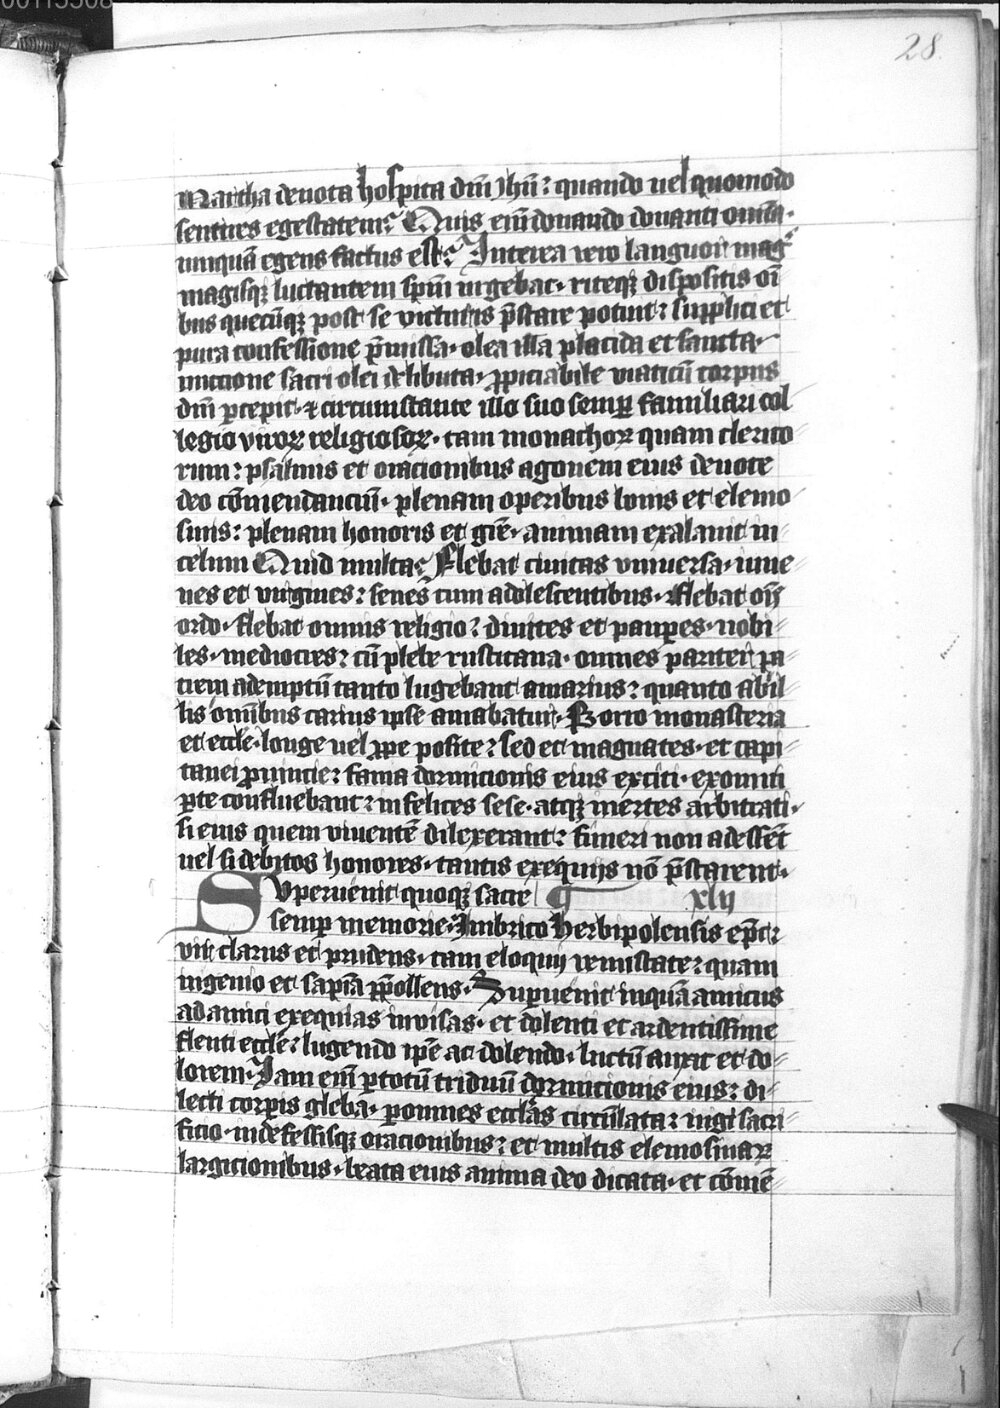 00115508
28.
Martha deuota hospita dn̄i ihū? quando uel quomodo
sentires egestatem? Quis enī donando donanti om̄ia
unquā egens factus est? Interea vero languor mag
magisqꝫ luctantem sp̄m urgebat· riteqꝫ dispositis oī
bus quecūqꝫ post se victuris p̄stare potuit? supplici et
pura confessione p̄missa· olea illa placida et fructa·
unctione sacri olei delibuta· ꝓpiciabile viaticū corpus
dn̄i ꝑcepit· ⁊ circumstante illo suo semꝑ familiari col
legio viroꝝ religiosoꝝ· tam monachoꝝ quam clerico
rum? psalmis et oracionibus agonem eius deuote
deo cōmendanciū· plenam operibus bonis et elemo
sinis? plenam honoris et glr̄ie· animam exalauit in
celum Quid multa? Flebat ciuitas vniuersa· iuue
nes et virgines? senes cum adolescentibus· flebat oīs
ordo· flebat omnis religio? diuites et pauꝑes· nobi
les· mediocres? cū plebe rusticana· omnes pariter pa
trem ademptū tanto lugebant amarius? quanto ab il
lis om̄ibus carius ipse amabatur· Porro monasteria
et eccl̄e· longe uel ꝓpe posite? sed et magnates· et capi
tanei prouincie? fama dormicionis eius exciti· ex omni
ꝑte confluebant? infelices sese· atqꝫ inertes arbitrati·
si eius quem viuentē dilexerant? funeri non adessēt
uel si debitos honores· tantis exequijs nō p̄starent·
Superuenit quoqꝫ sacre ¶ xlij
semꝑ memorie· Imbrico herbipolensis ep̄c?
vir clarus et prudens· tam eloquij venustate? quam
ingenio et sapīa p̄pollens· Suꝑuenit inquā amicus
ad amici exequias inuisas· et dolenti et ardentissime
flenti eccl̄e? lugendo ip̄e ac dolendo· luctū auxit et do
lorem· Iam enī ꝑ totū triduū dormicionis eius? di
lecti corꝑis gleba· ꝑ omnes eccl̄as circūlata? iugi sacri
ficio· indefessisqꝫ oracionibus? et multis elemosinaꝝ
largicionibus· beata eius anima deo dicata· et cōmē